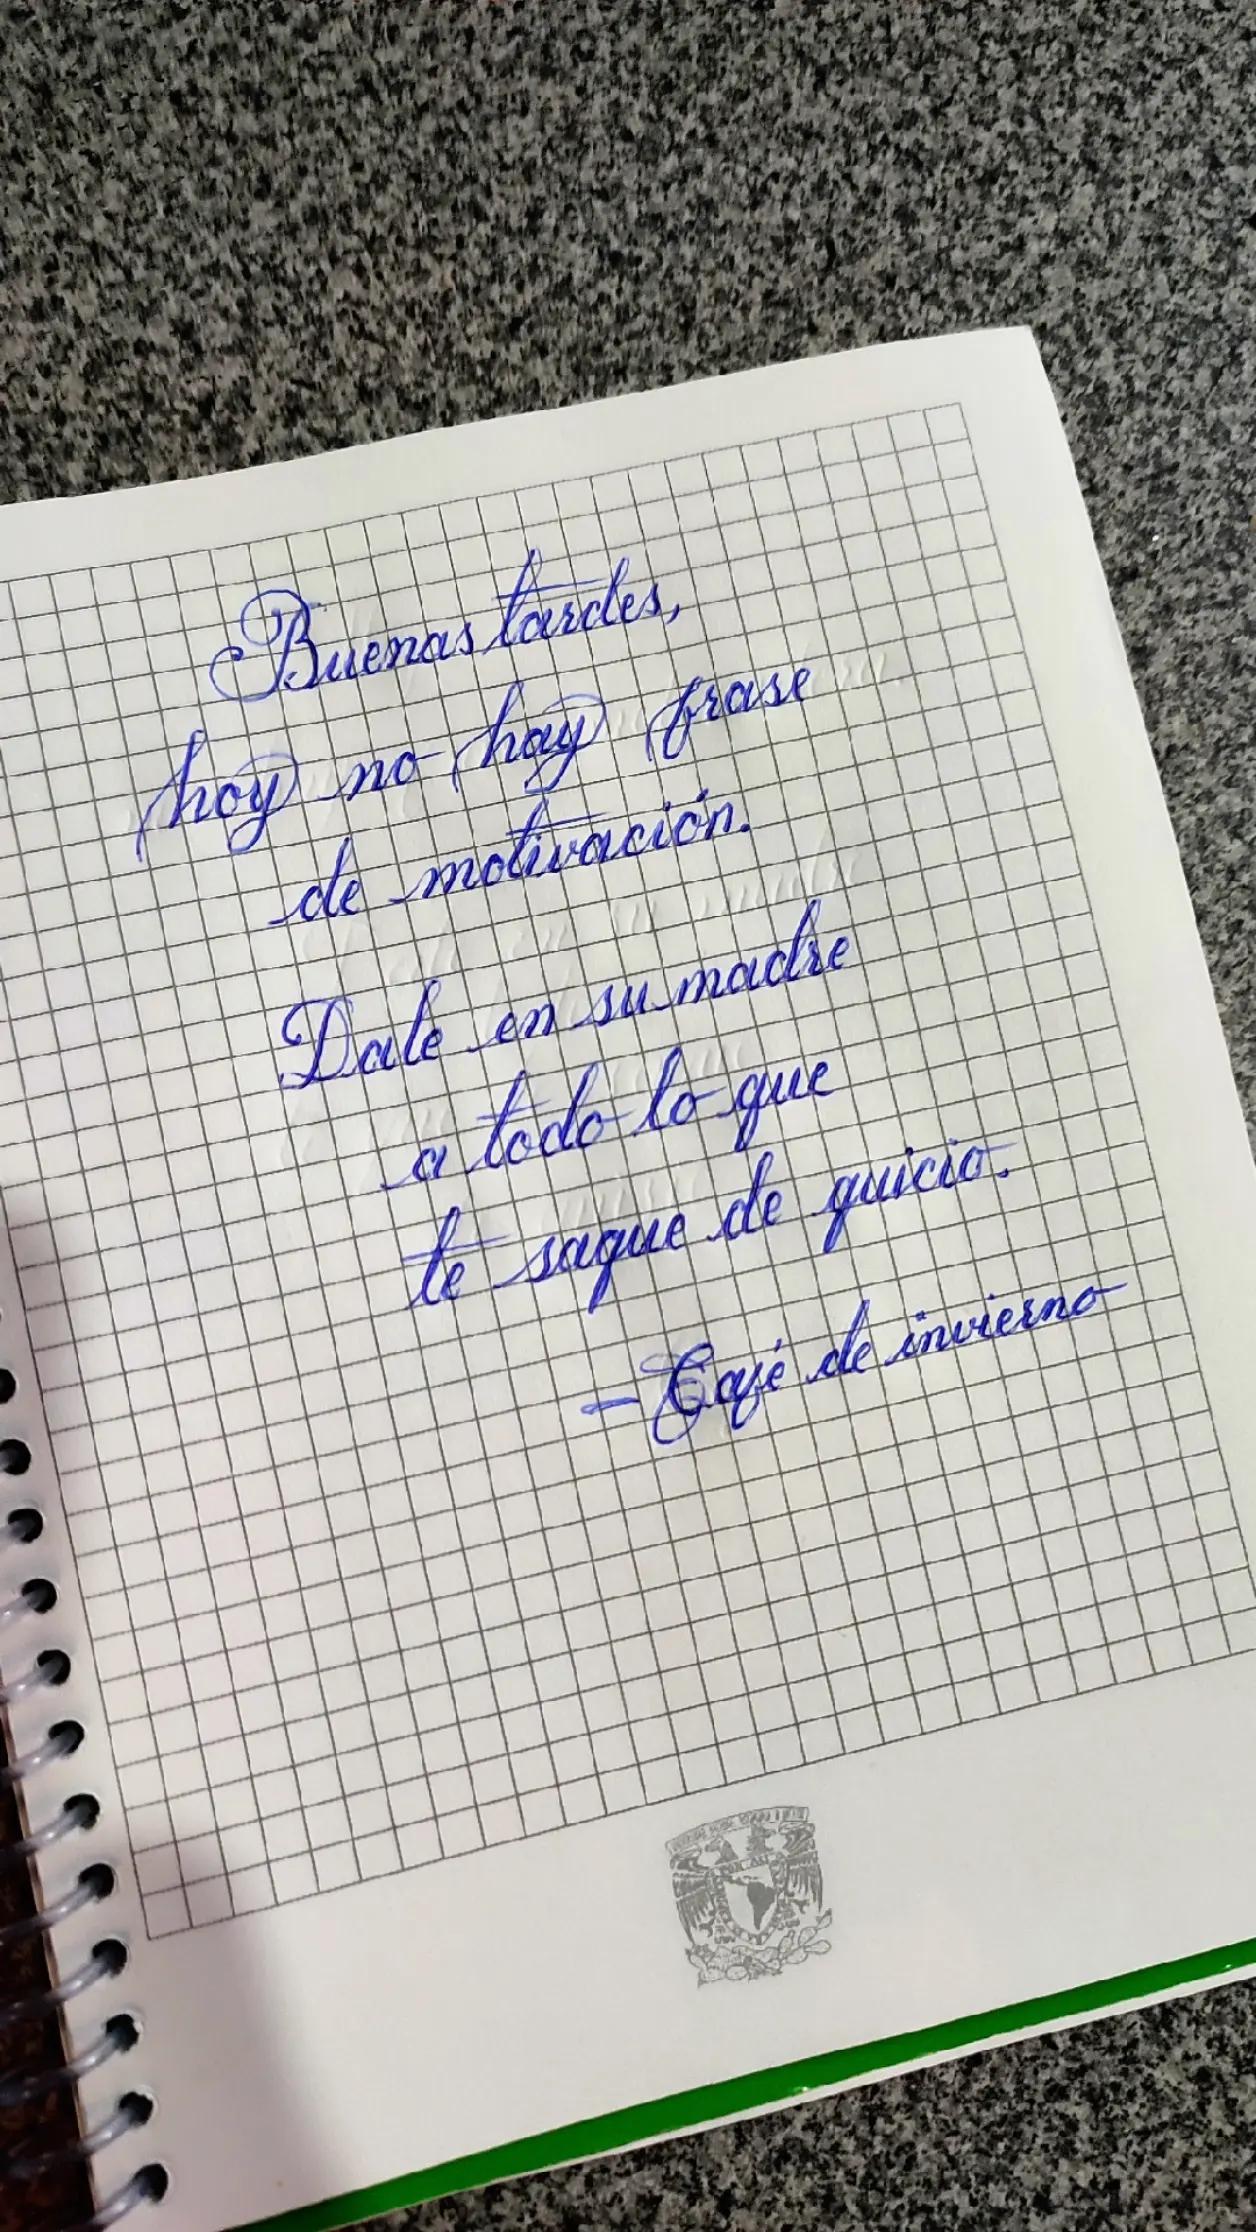 Buenas tardes,
hoy no hay frase
de motivación.
Dale en su madre
a todo lo que
te saque de quicio.
- Café de invierno